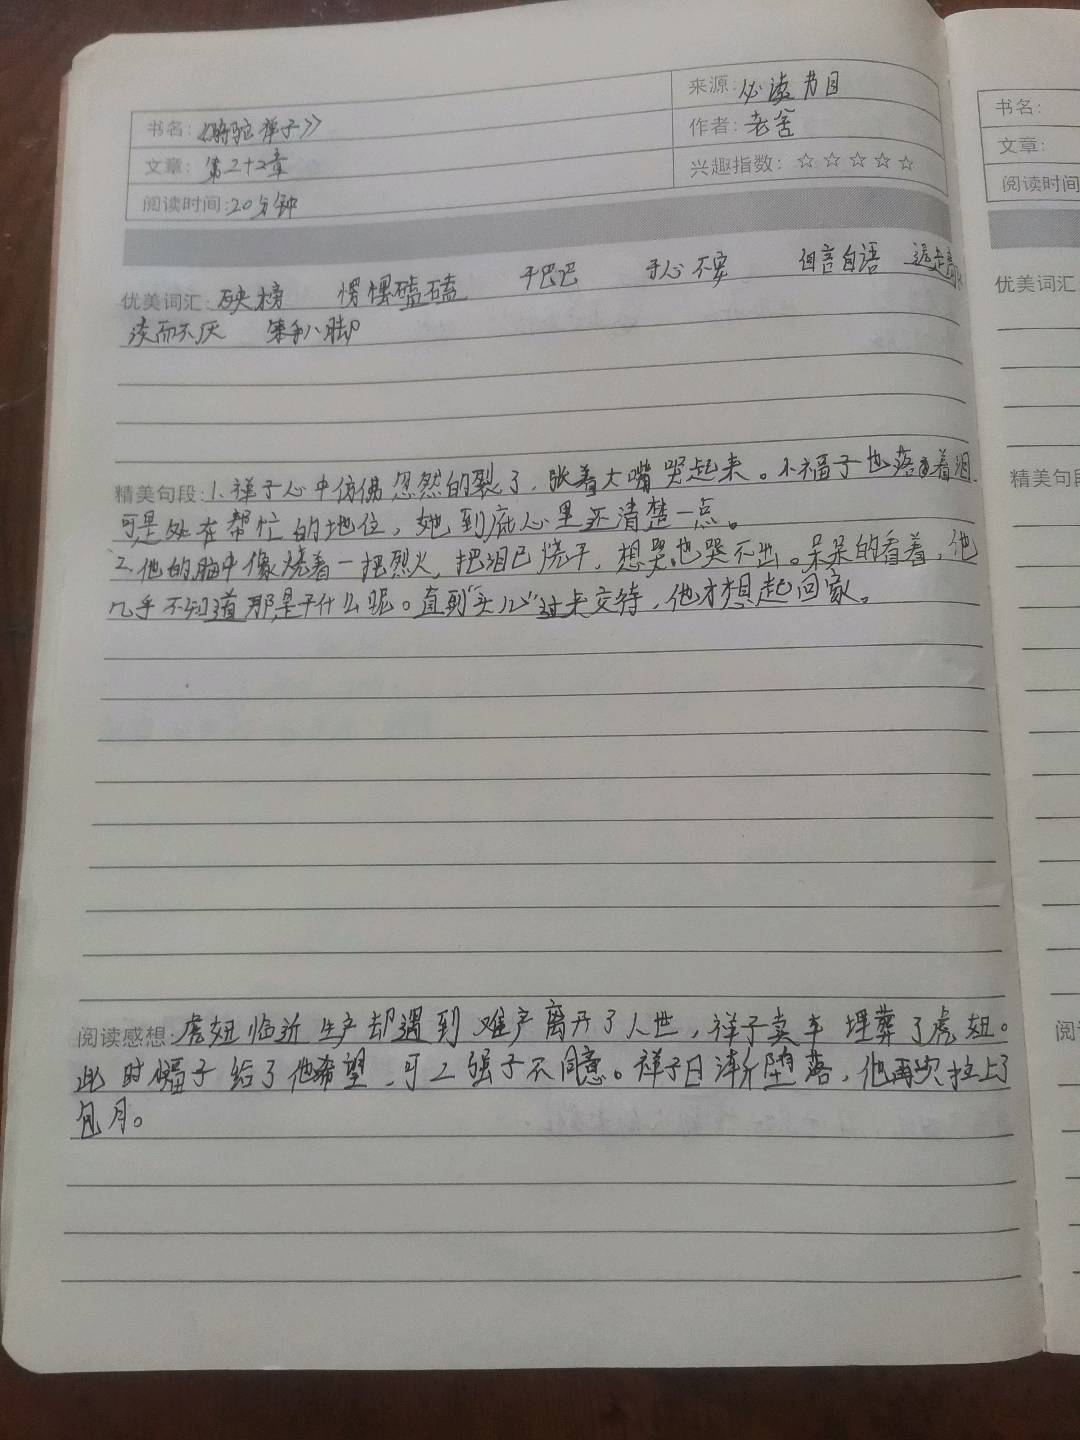 来源：必读书目
书名：《骆驼祥子》
作者：老舍
文章：第二十2章
兴趣指数：☆☆☆☆☆
阅读时间：20分钟
优美词汇：硖榜 愣愣磕磕 干巴巴 于心不安 自言自语 远走高
淡而不厌 笨手八脚
精美句段：1、祥子心中仿佛忽然的裂了，张着大嘴哭起来。小福子也落着泪，
可是处在帮忙的地位，她到底心里还清楚一点。
2、他的脑中像烧着一把烈火，把泪已烧干，想哭也哭不出。呆呆的看着，他
几乎不知道那是干什么呢。直到“头儿”过来交待，他才想起回家。
阅读感想：虎妞临近生产却遇到难产离开了人世，祥子卖车埋葬了虎妞。
此时福子给了他希望，可2强子不同意。祥子日渐堕落，他再次拉上了
包月。
书名：
文章：
阅读时间
优美词汇
精美句段
阅